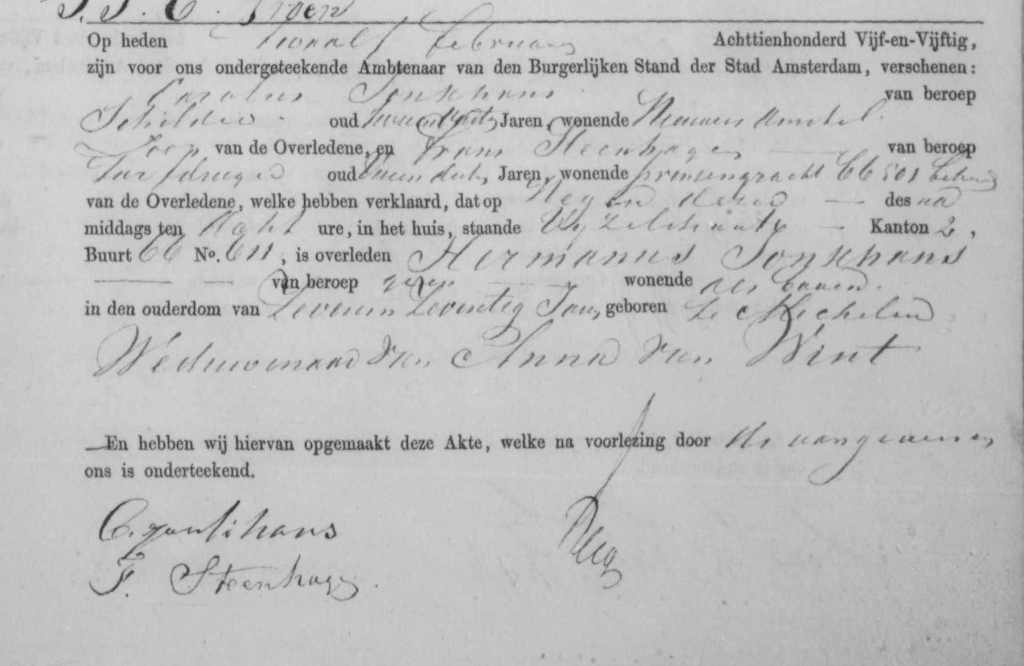 Op heden twaalf Februarij Achttienhonderd Vijf-en-Vijftig,
zijn voor ons ondergeteekende Ambtenaar van den Burgerlijken Stand der Stad Amsterdam, verschenen:
Carolus Jonkhans van beroep
Schilder oud Jaren, wonende Nieuwer Amstel.
Zoon van de Overledene, en Frans Steenhagen van beroep
Turfdrager oud Jaren, wonende prinsengracht 66 501 bekende
van de Overledene, welke hebben verklaard, dat op Negen dezer des na
middags ten Acht ure, in het huis, staande Kanton 2,
Buurt 66 No. 611, is overleden Hermanus Jonkhans
van beroep geen wonende als boven.
in den ouderdom van Zevenen Zeventig Jaar, geboren te Mechelen
Weduwenaar van Anna van Wint
En hebben wij hiervan opgemaakt deze Akte, welke na voorlezing door de aangevers en
ons is onderteekend.
F. Steenhagen